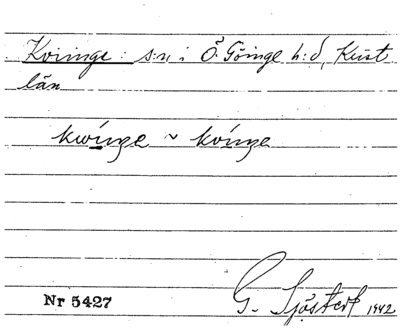 Kvinge: s:n i Ö. Göinge h:d, Krist
län
kwínge ~ kvínge
Nr 5427
G. Sjöstedt 1942